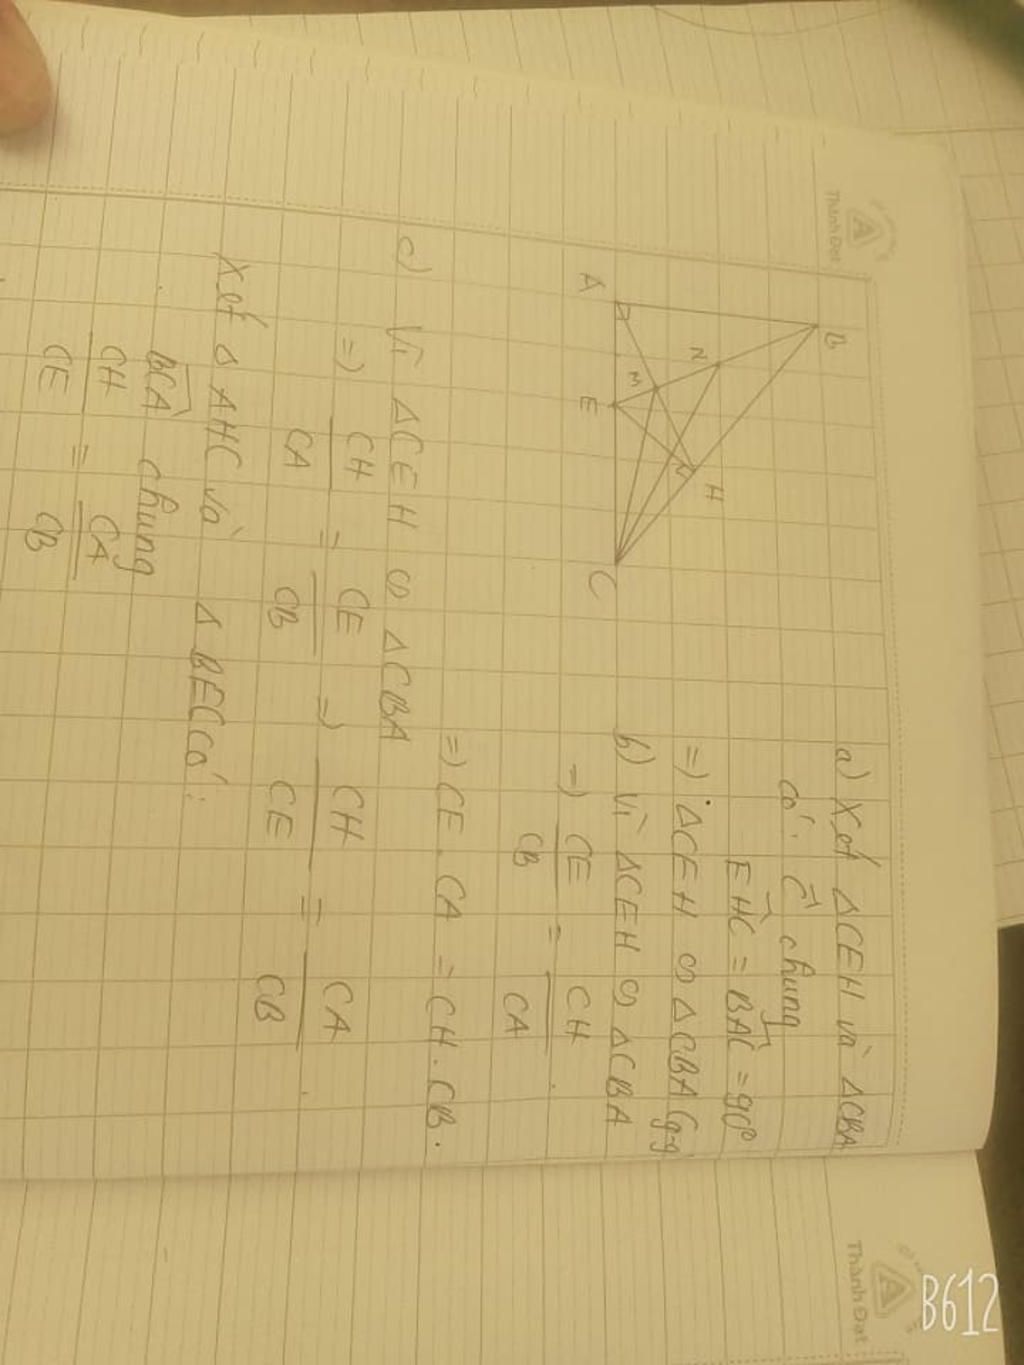 Thành Đạt
B
A
N
M
E
H
C
a) Xét ΔCEH và ΔCBA
có: Ĉ chung
EHC = BAC = 90°
=) ΔCEH ∽ ΔCBA (g-g
b) Vì ΔCEH ∽ ΔCBA
=) CE/CB = CH/CA
=) CE.CA = CH.CB.
c) Vì ΔCEH ∽ ΔCBA
=) CH/CA = CE/CB =) CH/CE = CA/CB.
Xét Δ AHC và Δ BEC có:
BCA chung
CH/CE = CA/CB
Thành Đạt
B612